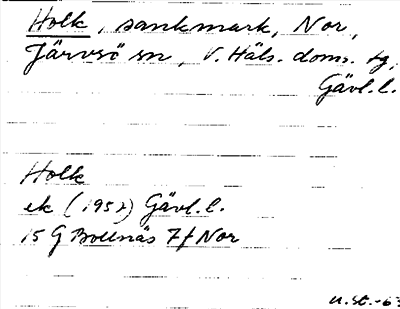 Holk, sankmark, Nor,
Järvsö sn, V. Häls. doms. tg,
Gävl. l.
Holk
ek (1957) Gävl. l.
15 G Bollnäs 7f Nor
u. st. -63